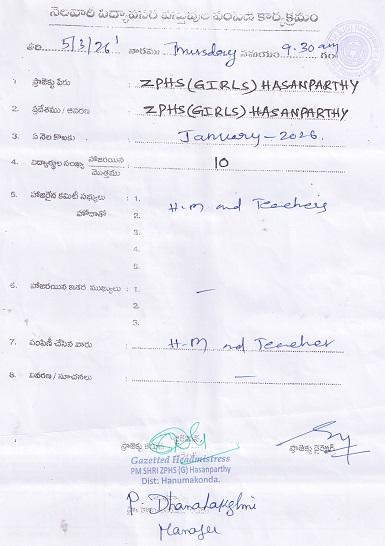 నెలవారీ విద్యావసర వస్తువుల పంపిణీ కార్యక్రమం
తేది 5/3/26' వారము Thursday సమయం 9.30 am గం
1. ప్రాజెక్టు పేరు : ZPHS (GIRLS) HASANPARTHY
2. ప్రదేశము / ఆవరణ : ZPHS (GIRLS) HASANPARTHY
3. ఏ నెల కొఱకు : January - 2026.
4. విద్యార్థుల సంఖ్య హాజరయిన / మొత్తము : 10
5. హాజరైన కమిటీ సభ్యులు : 1. H.M and Teachers
హోదాతో 2.
3.
4.
5.
6. హాజరయిన ఇతర ముఖ్యులు : 1. —
2.
3.
7. పంపిణీ చేసిన వారు : H-M and Teacher
8. వివరణ / సూచనలు : —
ప్రాజెక్టు
ప్రాజెక్టు డైరెక్టర్
Gazetted Headmistress
PM SHRI ZPHS (G) Hasanparthy
Dist: Hanumakonda.
P. Dhanalakshmi
Manager